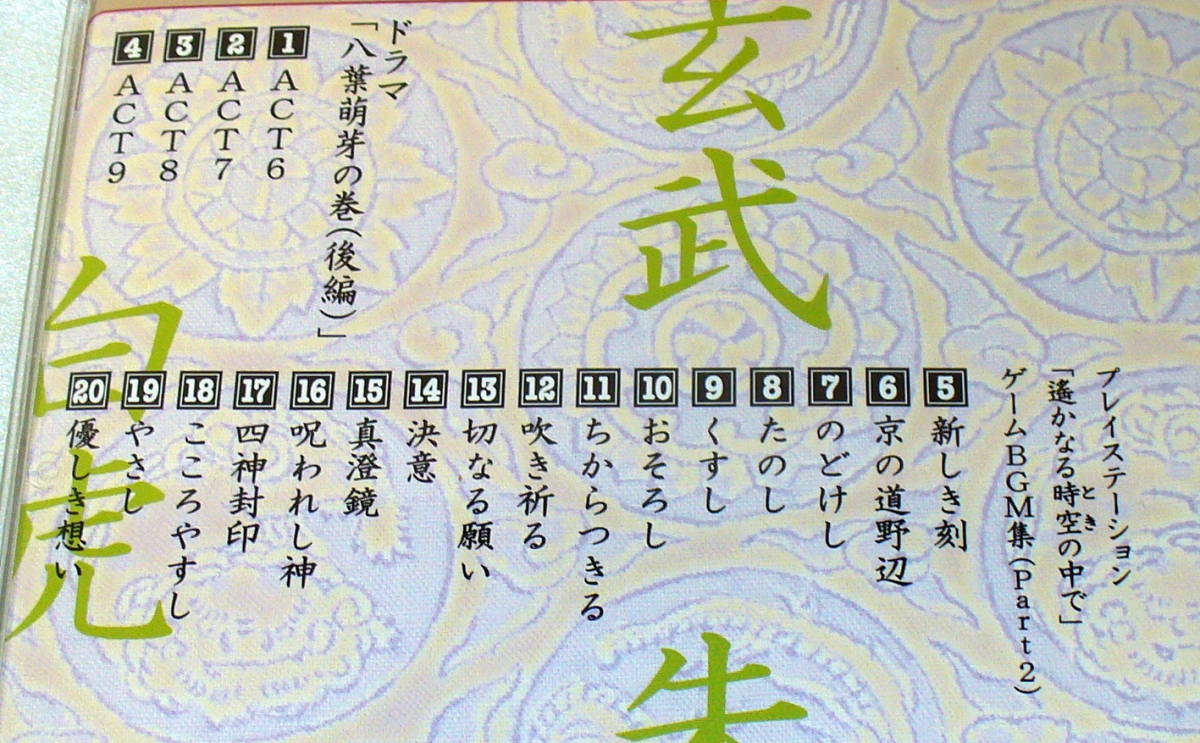 ドラマ
「八葉萌芽の巻(後編)」
1 ACT6
2 ACT7
3 ACT8
4 ACT9
プレイステーション
「遙かなる時空の中で」
とき
ゲームBGM集(Part2)
5 新しき刻
6 京の道野辺
7 のどけし
8 たのし
9 くすし
10 おそろし
11 ちからつきる
12 吹き祈る
13 切なる願い
14 決意
15 真澄鏡
16 呪われし神
17 四神封印
18 こころやすし
19 やさし
20 優しき想い
玄武
白虎
朱